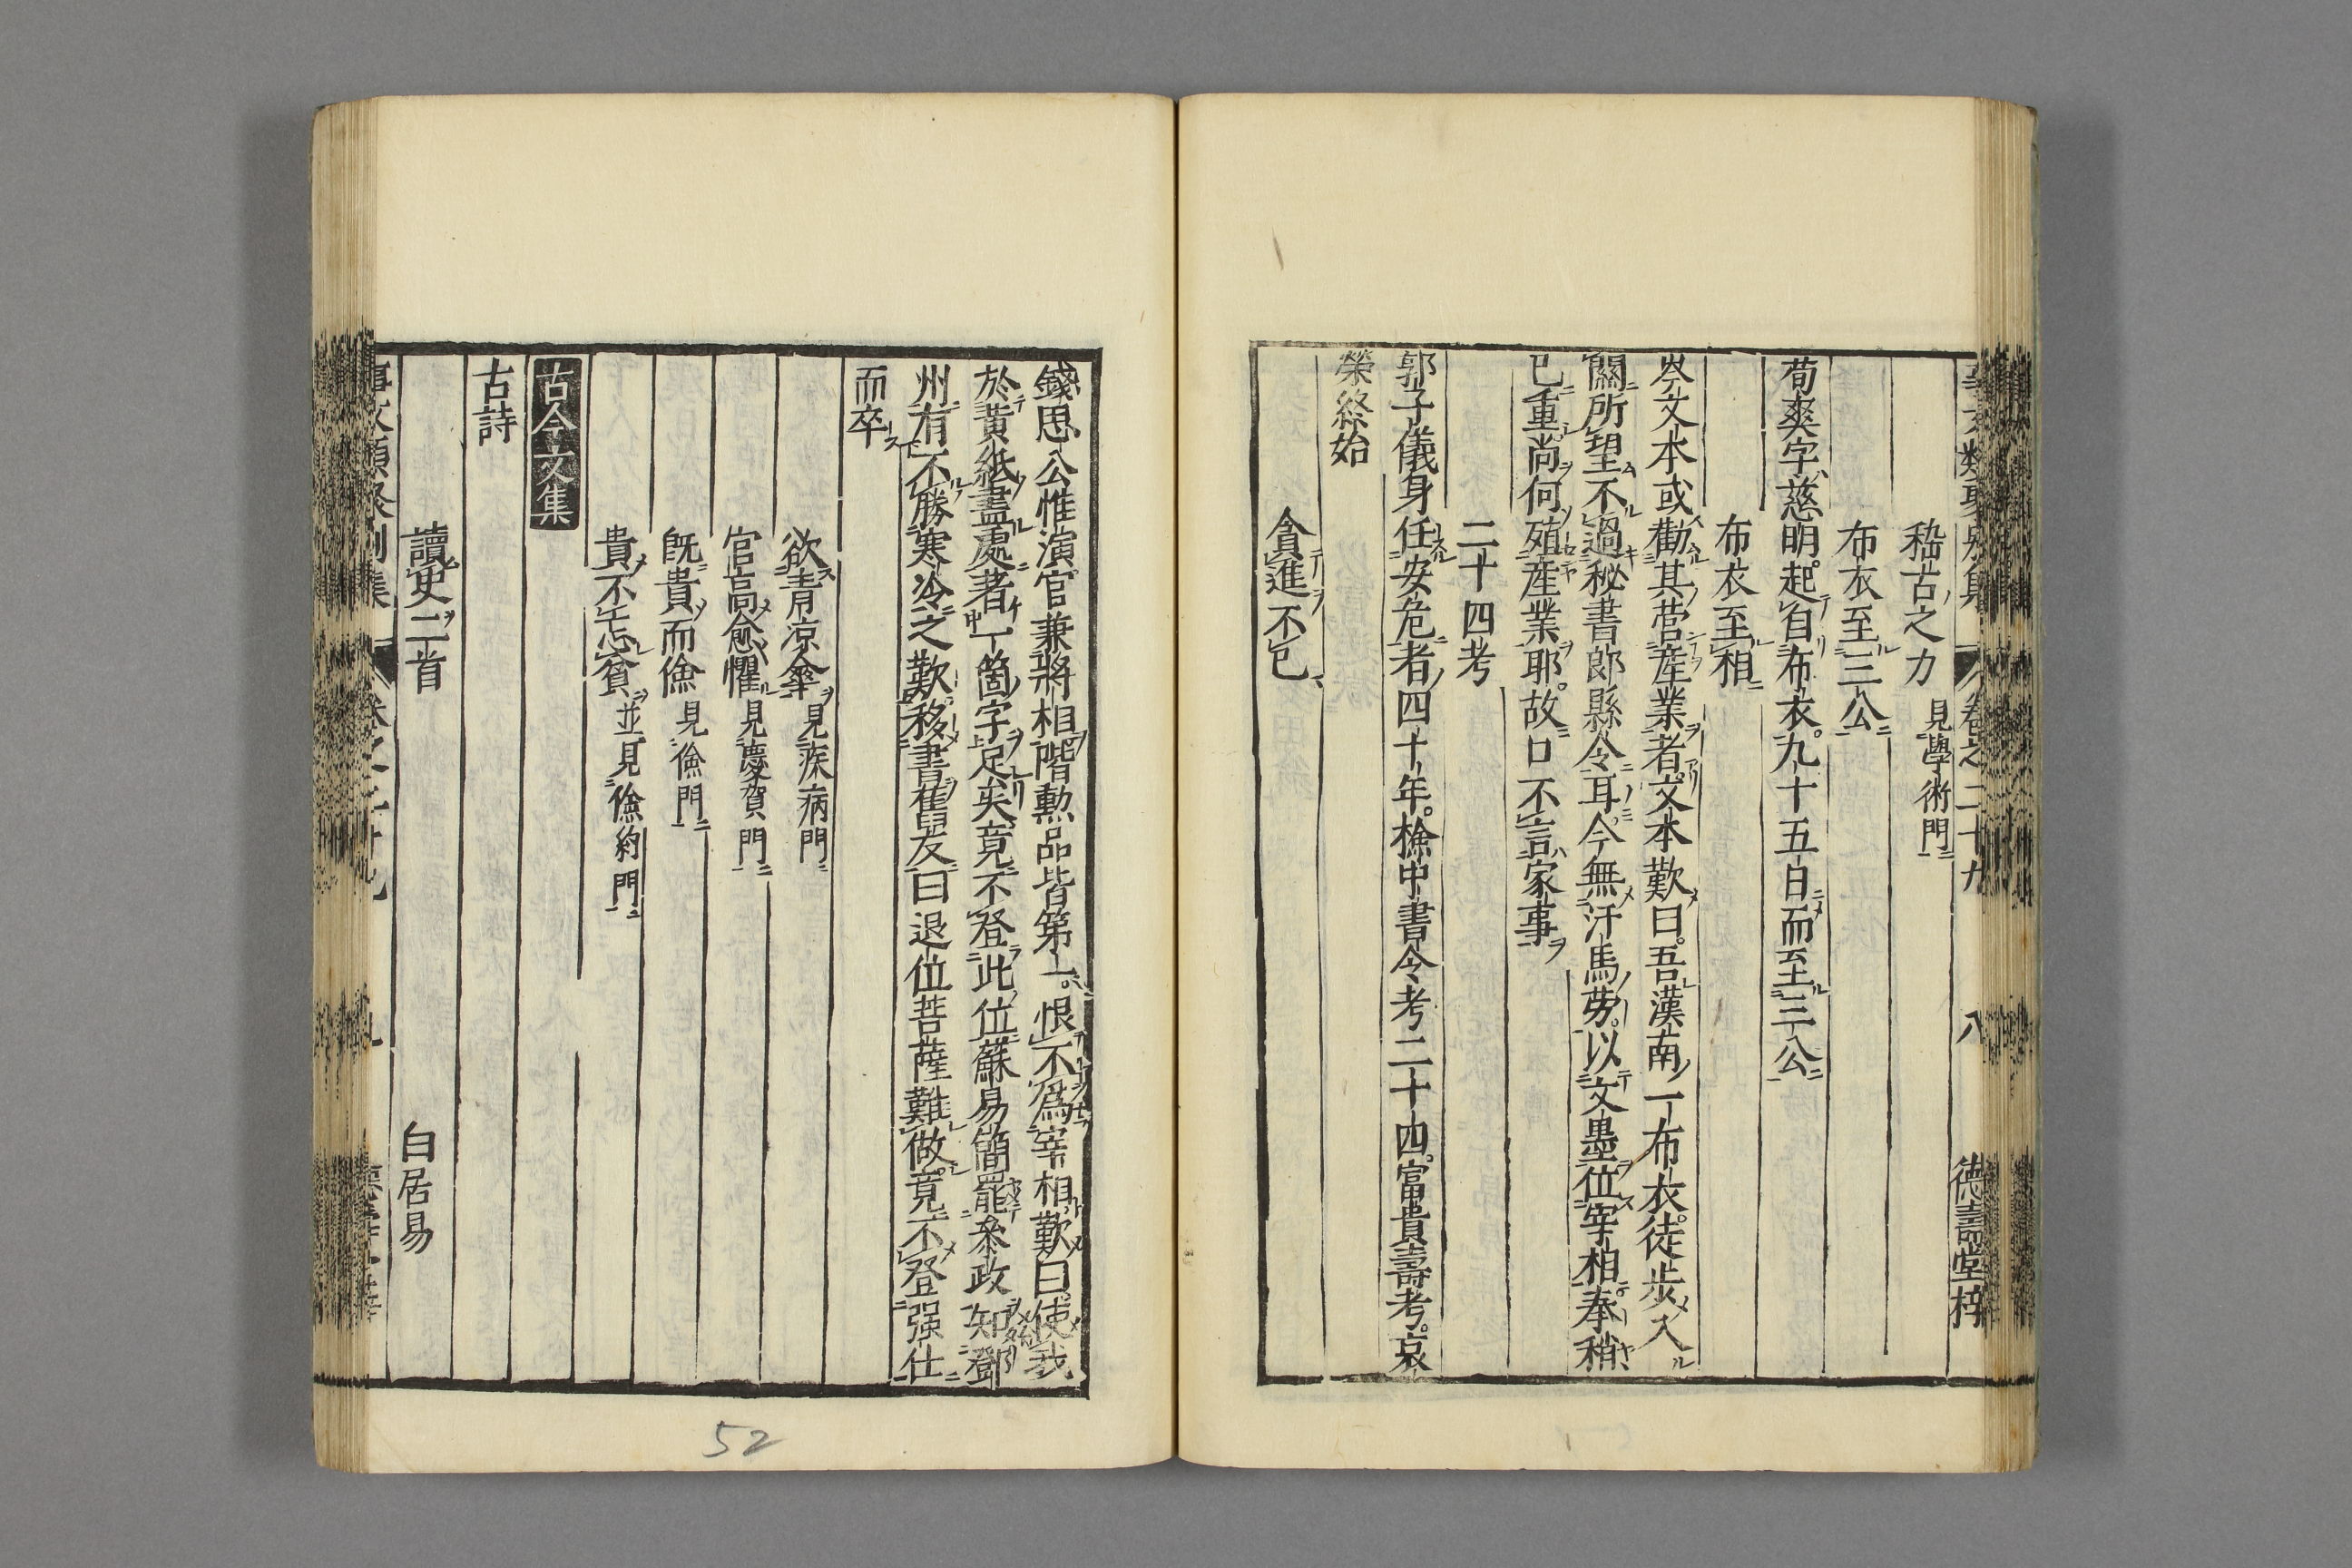 事文類聚別集 卷之二十九 八 德壽堂梓
稽古之力 見學術門
布衣至三公
荀爽字慈明起自布衣九十五日而至三公
布衣至相
岑文本或勸其營產業者文本歎曰吾漢南一布衣徒步入
關所望不過秘書郎縣令耳今無汗馬勞以文墨位宰相奉稍
已重尚何殖產業耶故口不言家事
二十四考
郭子儀身任安危者四十年檢中書令考二十四富貴壽考哀
榮終始
貪進不已
錢思公惟演官兼將相階勲品皆第一恨不爲宰相歎曰使我
於黃紙盡處著一箇字足矣竟不登此位蘇易簡罷叅政知鄧
州有不勝寒冷之歎移書舊友曰退位菩薩難做竟不登强仕
而卒
欲青凉傘 見疾病門
官高愈懼 見慶賀門
旣貴而儉 見儉門
貴不忘貧 並見儉約門
古今文集
古詩
讀史二首 白居易
事文類聚別集 卷之二十九 九
52